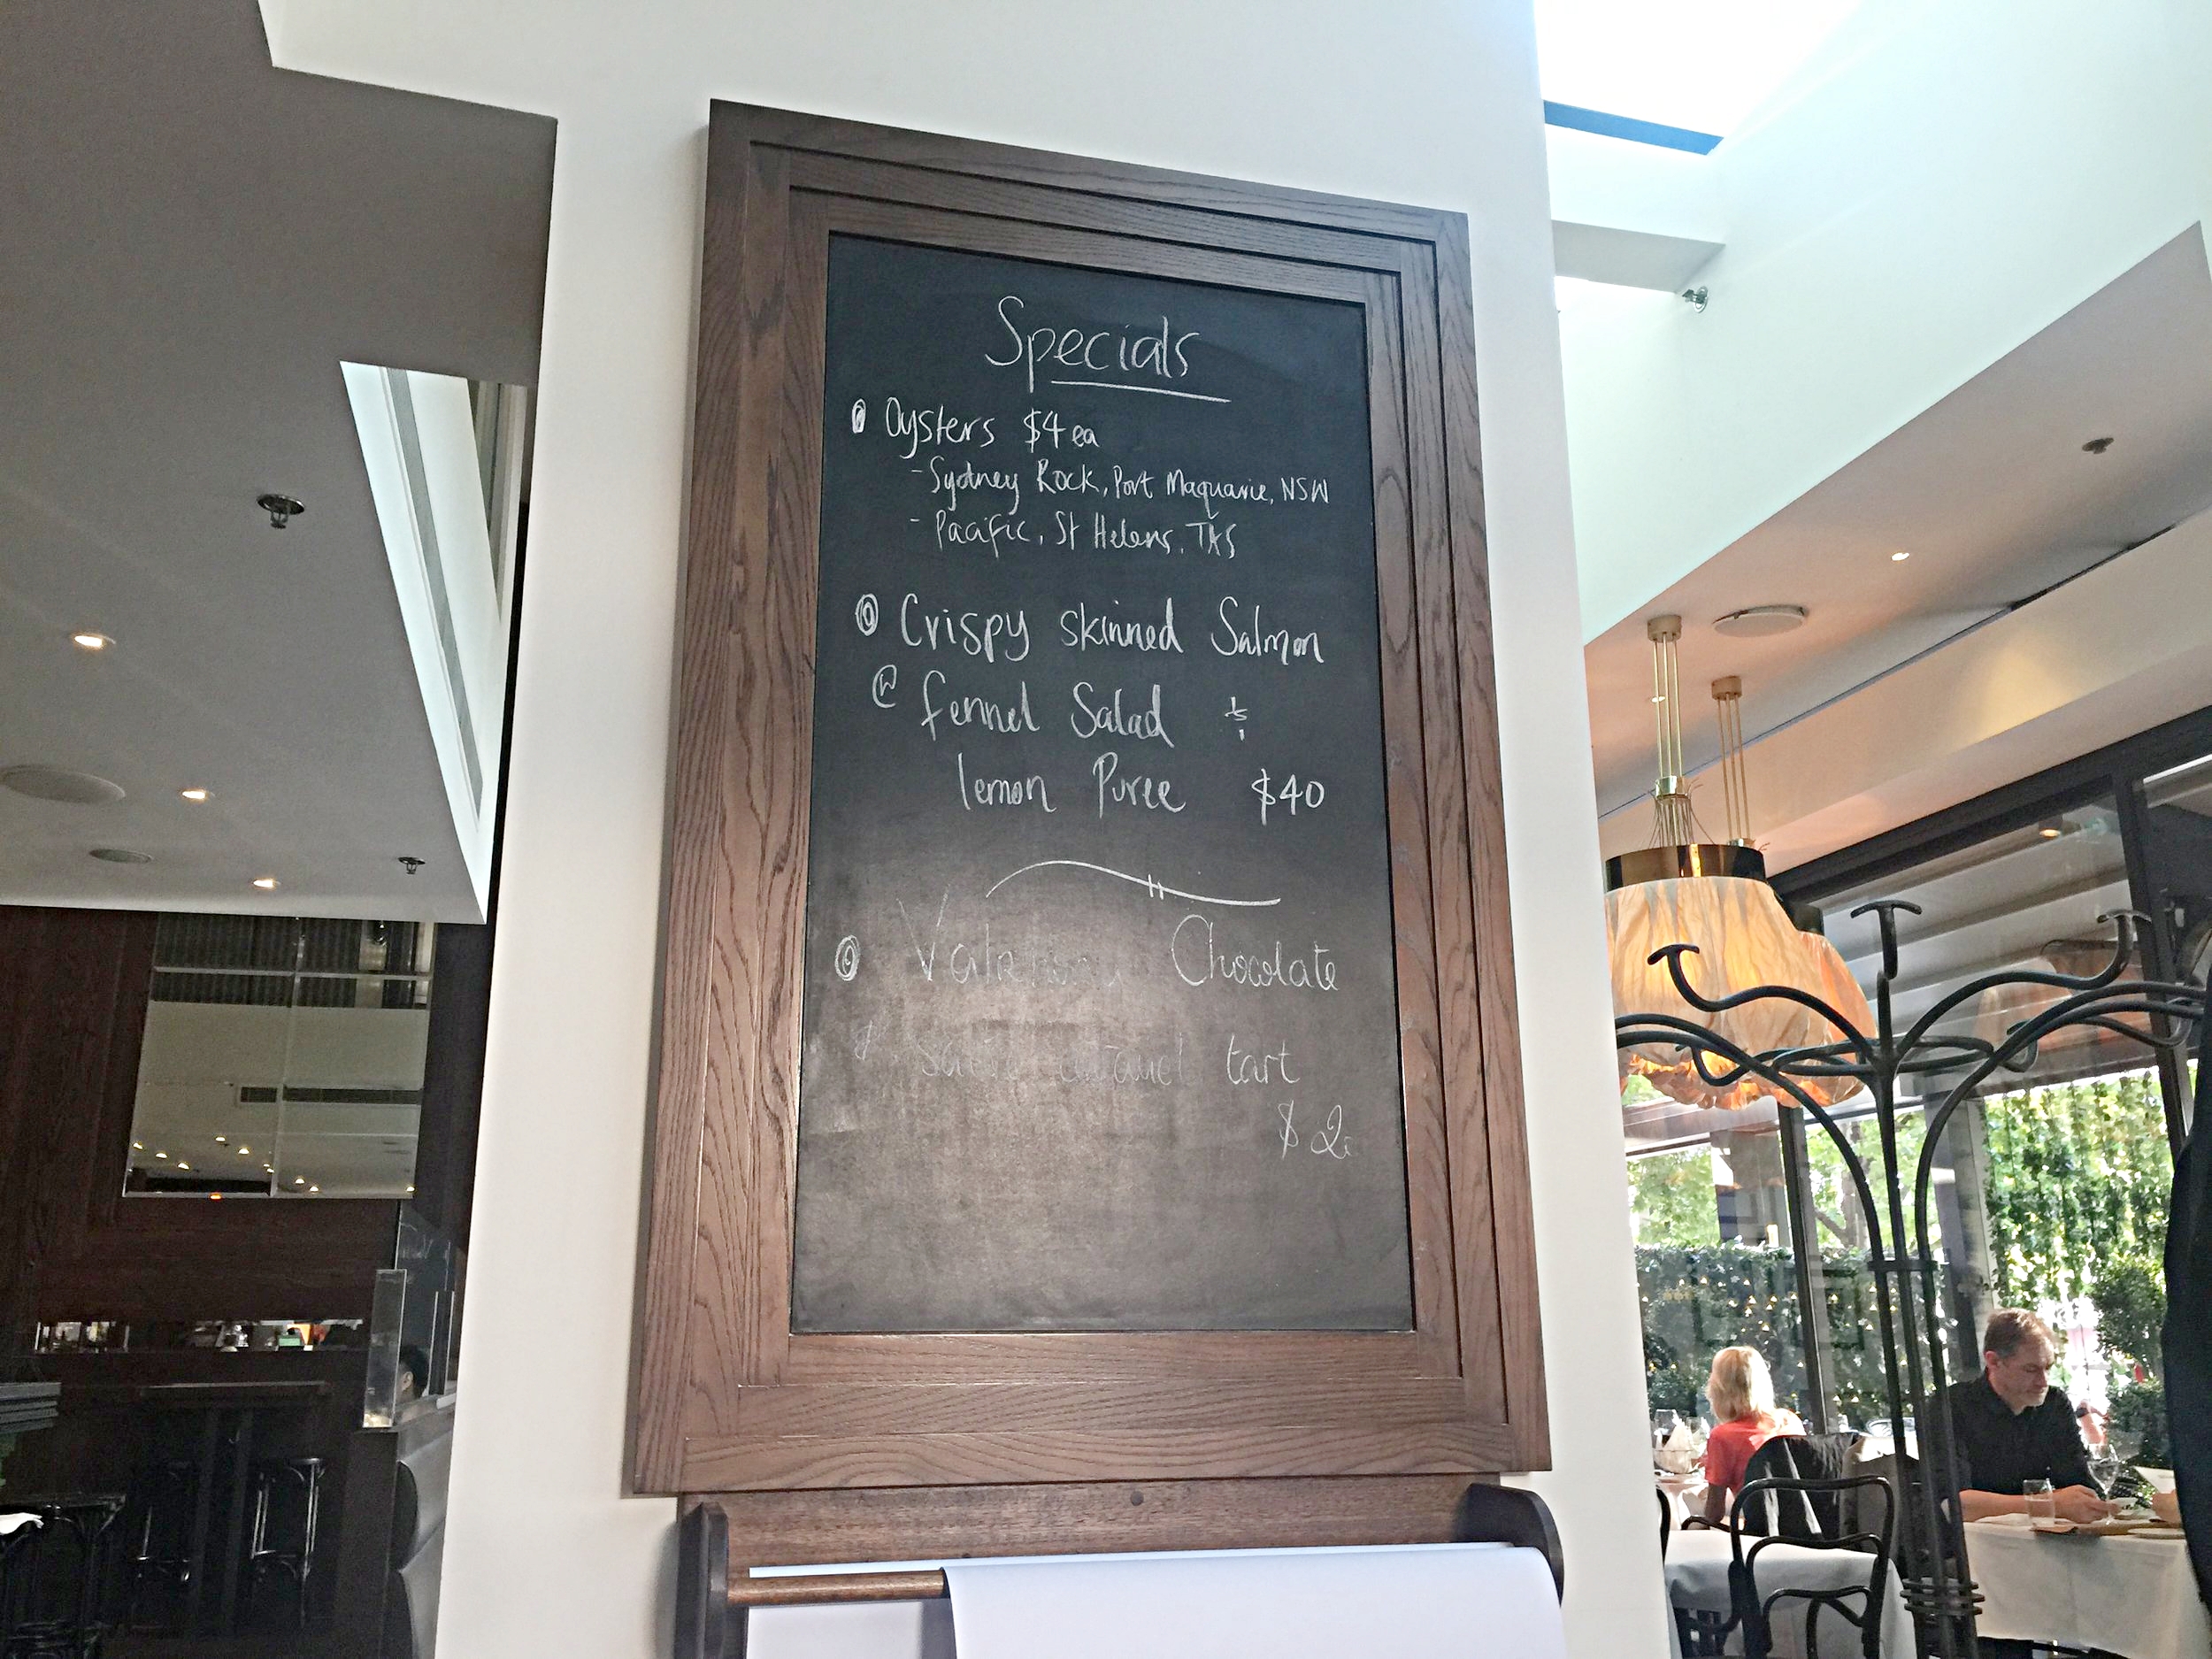 Specials
Oysters $4 ea
- Sydney Rock, Port Maquarie, NSW
- Pacific, St Helens, TAS
Crispy skinned Salmon
fennel Salad &
lemon Puree $40
Chocolate
tart